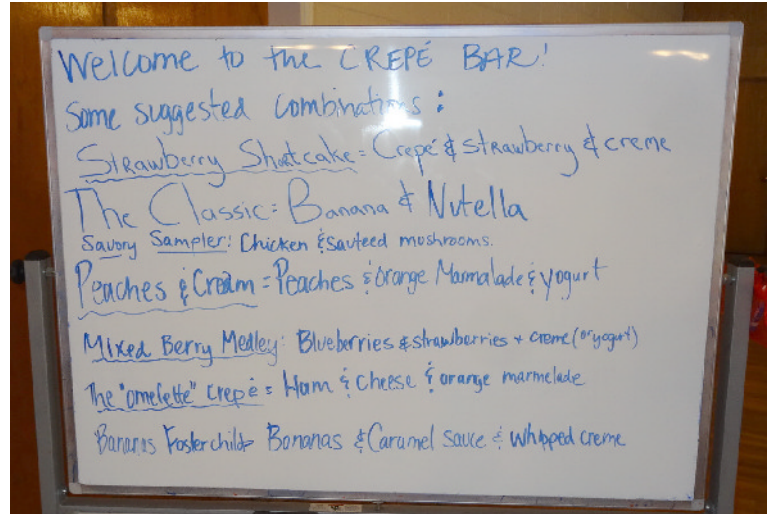 Welcome to the CREPÉ BAR!
Some suggested combinations:
Strawberry Shortcake = Crepé & strawberry & creme
The Classic: Banana & Nutella
Savory Sampler: Chicken & sauteed mushrooms.
Peaches & Cream = Peaches & orange Marmalade & yogurt
Mixed Berry Medley: Blueberries & strawberries + creme (or yogurt)
The "omelette" crepé = Ham & Cheese & orange marmelade
Bananas Fosterchild> Bananas & Caramel sauce & whipped creme